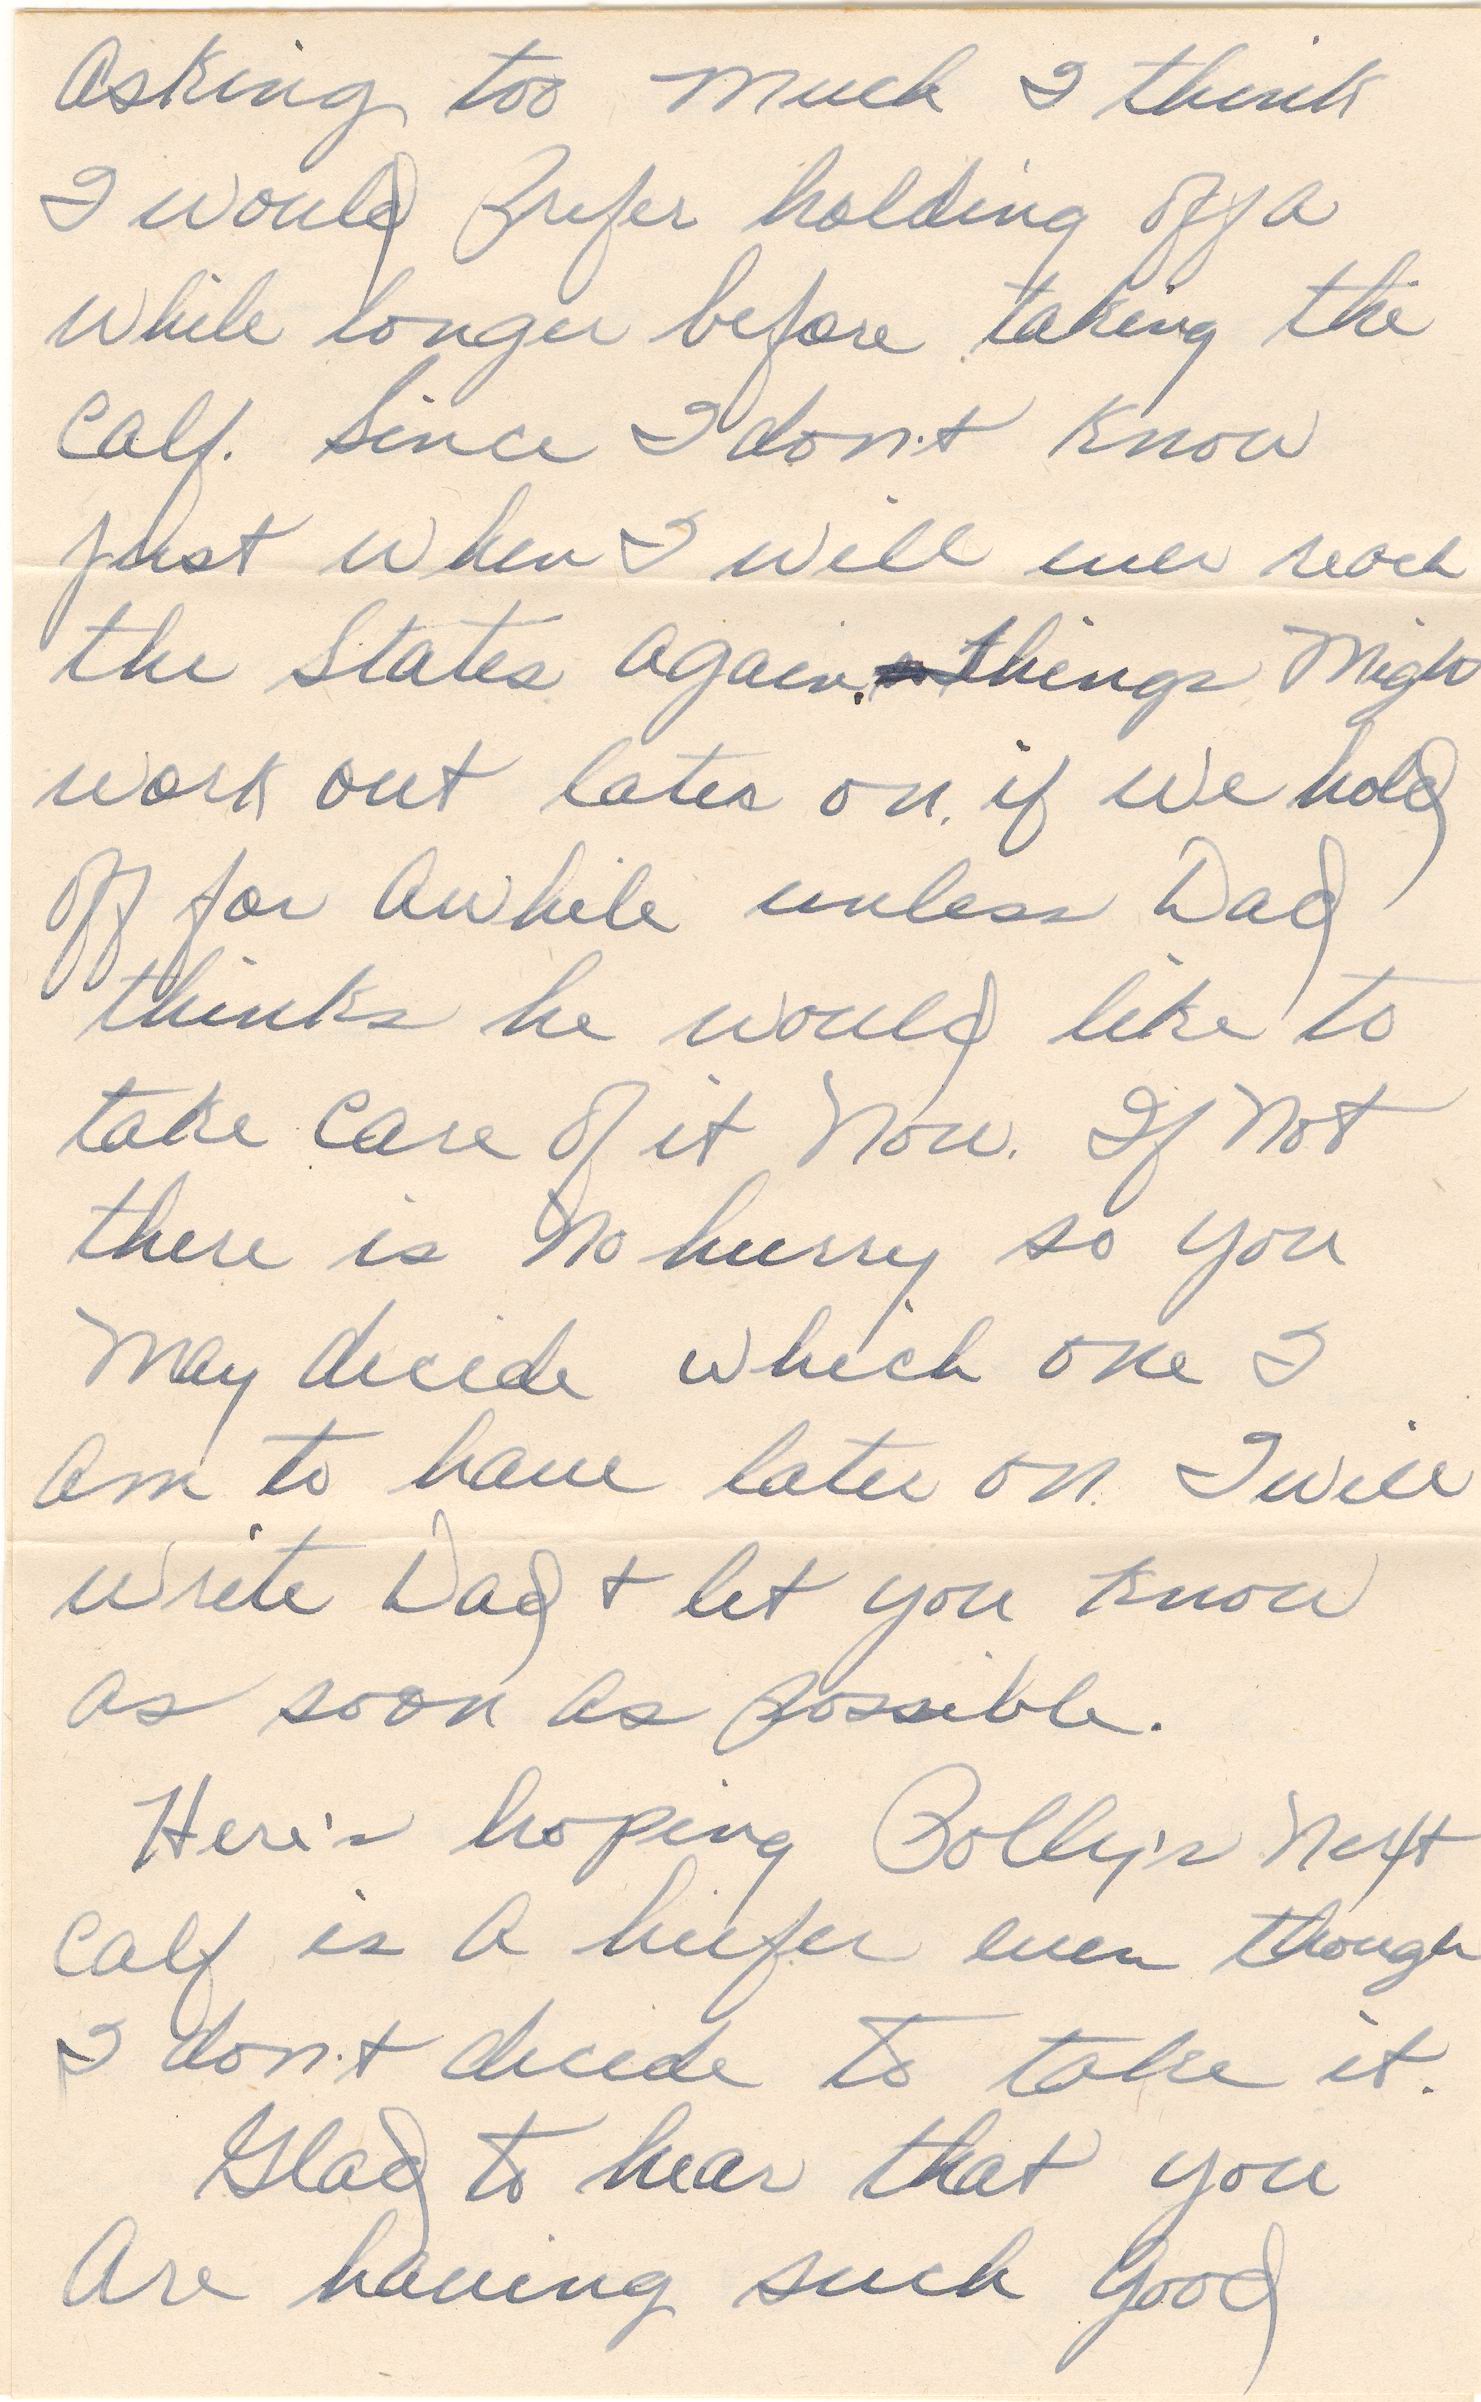 asking too much I think
I would prefer holding off a
while longer before taking the
Calf. Since I don't know
just when I will ever reach
the States again. things Migh
work out later on. if we hold
off for awhile unless Dad
thinks he would like to
take care of it Now. If Not
there is No hurry so you
May decide which one I
am to have later on. I will
write Dad + let you know
as soon as possible.
Here's hoping Polly's Next
calf is a heifer even though
I don't decide to take it.
Glad to hear that you
are having such good